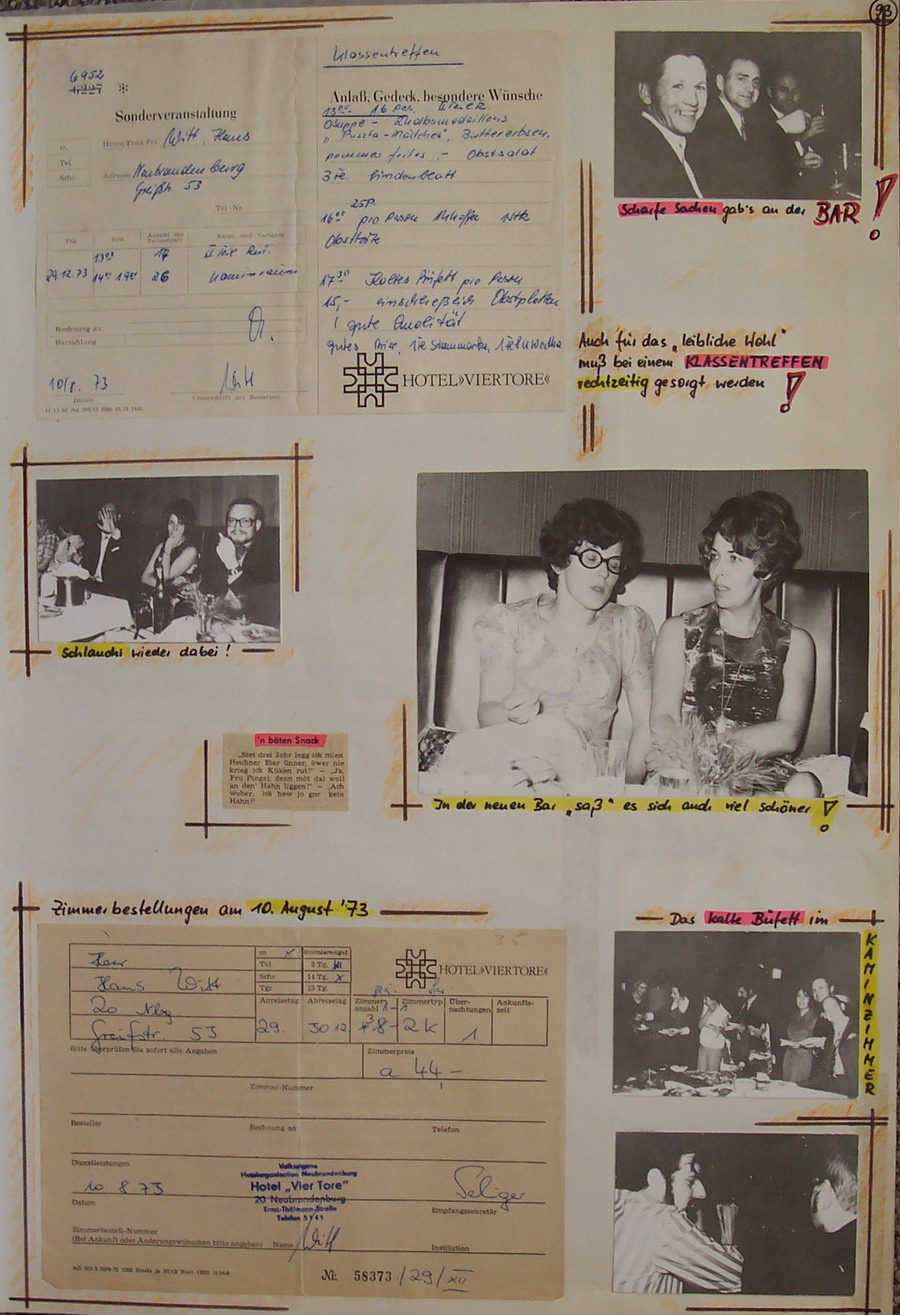 93
6952
Sonderveranstaltung
Herrn/Frau/Frl. Witt, Hans
m.
Tel.
Schr.
Adresse Neubrandenburg
Greifstr. 53
Tel.-Nr.
Tag
Zeit
Anzahl der Teilnehmer
Raum und Variante
13⁰⁰
29.12.73 14⁰⁰ 19⁰⁰ 26 Kaminraum
Rechnung an
Barzahlung
10/8. 73
Witt
Datum
Unterschrift des Bestellers
Klassentreffen
Anlaß, Gedeck, besondere Wünsche
13⁰⁰ 16 Pers.
"Puszta-Mädchen", Buttererbsen,
pommes frites, - Obstsalat
3 Fl. Lindenblatt
25P.
16⁰⁰ pro Person
Obsttorte
17³⁰ Kaltes Büfett pro Person
15,- einschließlich Obstplatten
! gute Qualität
gutes Bier,
HOTEL»VIERTORE«
Scharfe Sachen gab's an der BAR!
Auch für das „leibliche Wohl"
muß bei einem KLASSENTREFFEN
rechtzeitig gesorgt werden!
Schlauchi wieder dabei!
'n bäten Snack
„Siet drei Johr legg ick mien
Heuhner Eier ünner, öwer nie
krieg ick Küken rut!" – „Ja,
Fru Pingel, denn möt dal woll
an den' Hahn liggen!" – „Ach
woher, ick hew jo gor kein
Hahn!"
In der neuen Bar „saß" es sich auch viel schöner!
Zimmerbestellungen am 10. August '73
Herr
Hans Witt
20 Nbg
Greifstr. 53
m x
Tel
Schr
Tgr
2 Tg.
14 Tg. x
23 Tg.
HOTEL»VIERTORE«
Anreisetag
29.
Abreisetag
30 12
Zimmeranzahl
Zimmertyp
2K
Übernachtungen
1
Ankunftszeit
Bitte überprüfen Sie sofort alle Angaben
Zimmerpreis
a 44,-
Zimmer-Nummer
Besteller
Rechnung an
Telefon
Dienstleistungen
10 8 73
Datum
Volkseigene
Hotelorganisation Neubrandenburg
Hotel „Vier Tore"
20 Neubrandenburg
Ernst-Thälmann-Straße
Telefon 5141
Seliger
Empfangssekretär
Zimmerbestell-Nummer
(Bei Ankunft oder Änderungswünschen bitte angeben)
Name Witt
Institution
Nr. 58373 /29/XII
Das kalte Büfett im
KAMINZIMMER